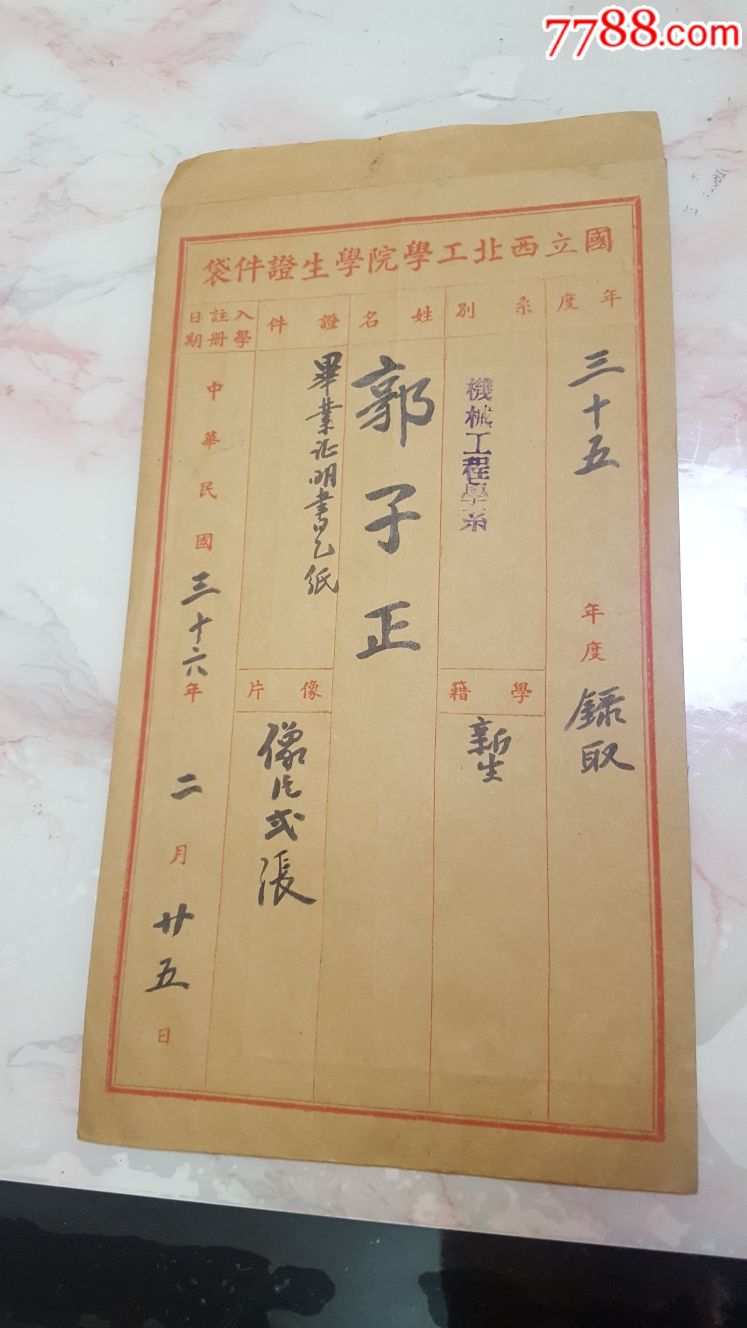 7788.com
國立西北工學院學生證件袋
年度
三十五年度錄取
系別
機械工程學系
學籍
新生
姓名
郭子正
證件
畢業证明書乙紙
像片
像片弍張
入學
註冊
日期
中華民國三十六年二月廿五日